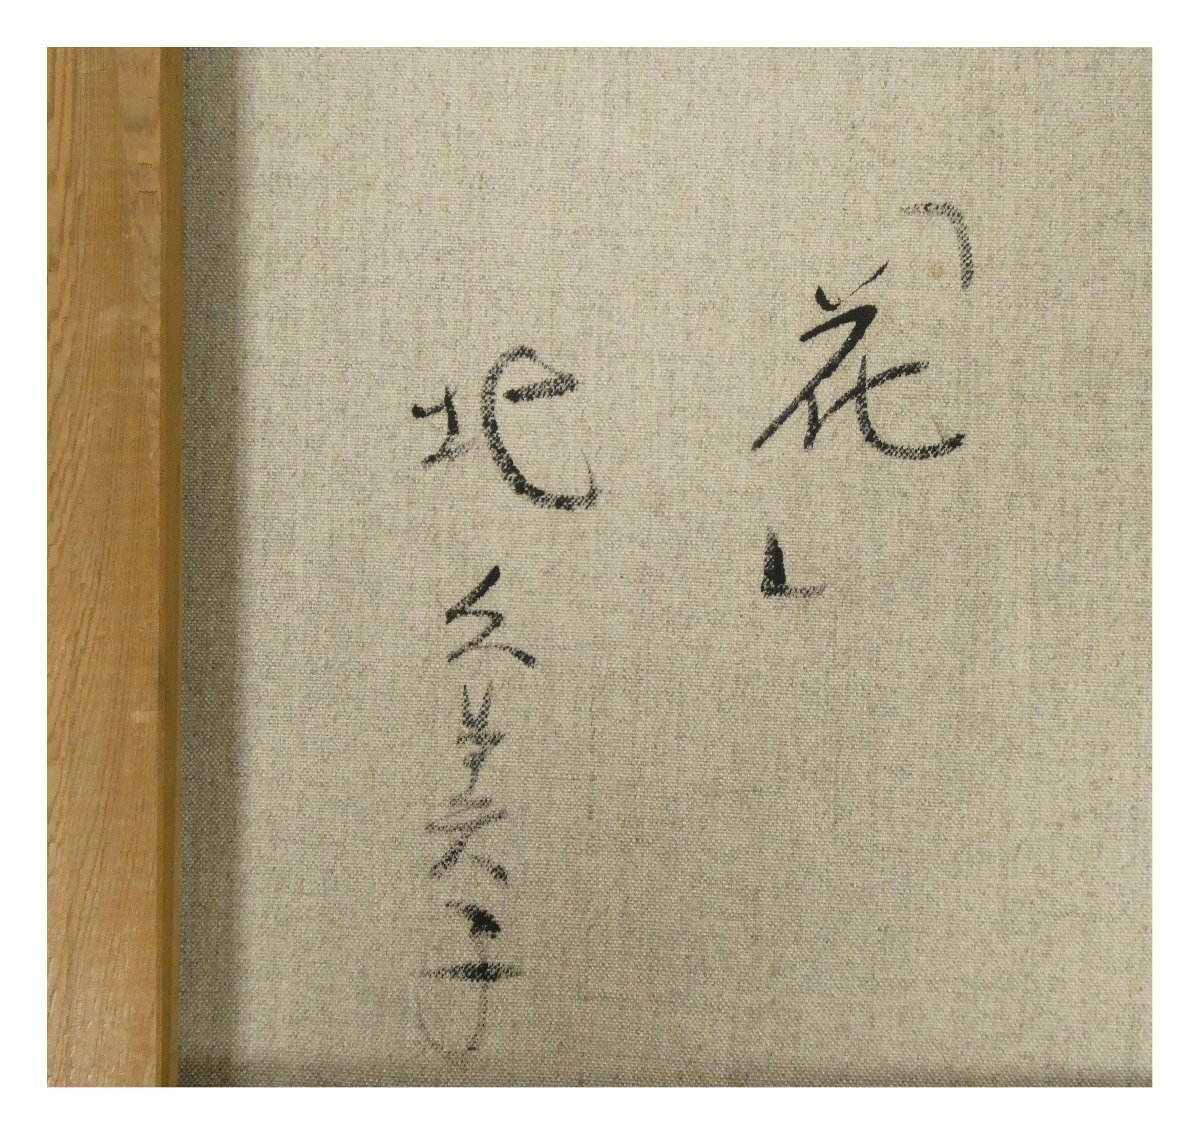 「花」
北久美子